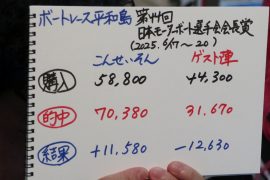 ボートレース平和島 第44回
日本モーターボート選手会会長賞
(2025.6/17~20)
こんせいそん ゲスト陣
購入 58,800 +4,300
的中 70,380 31,670
結果 +11,580 -12,630